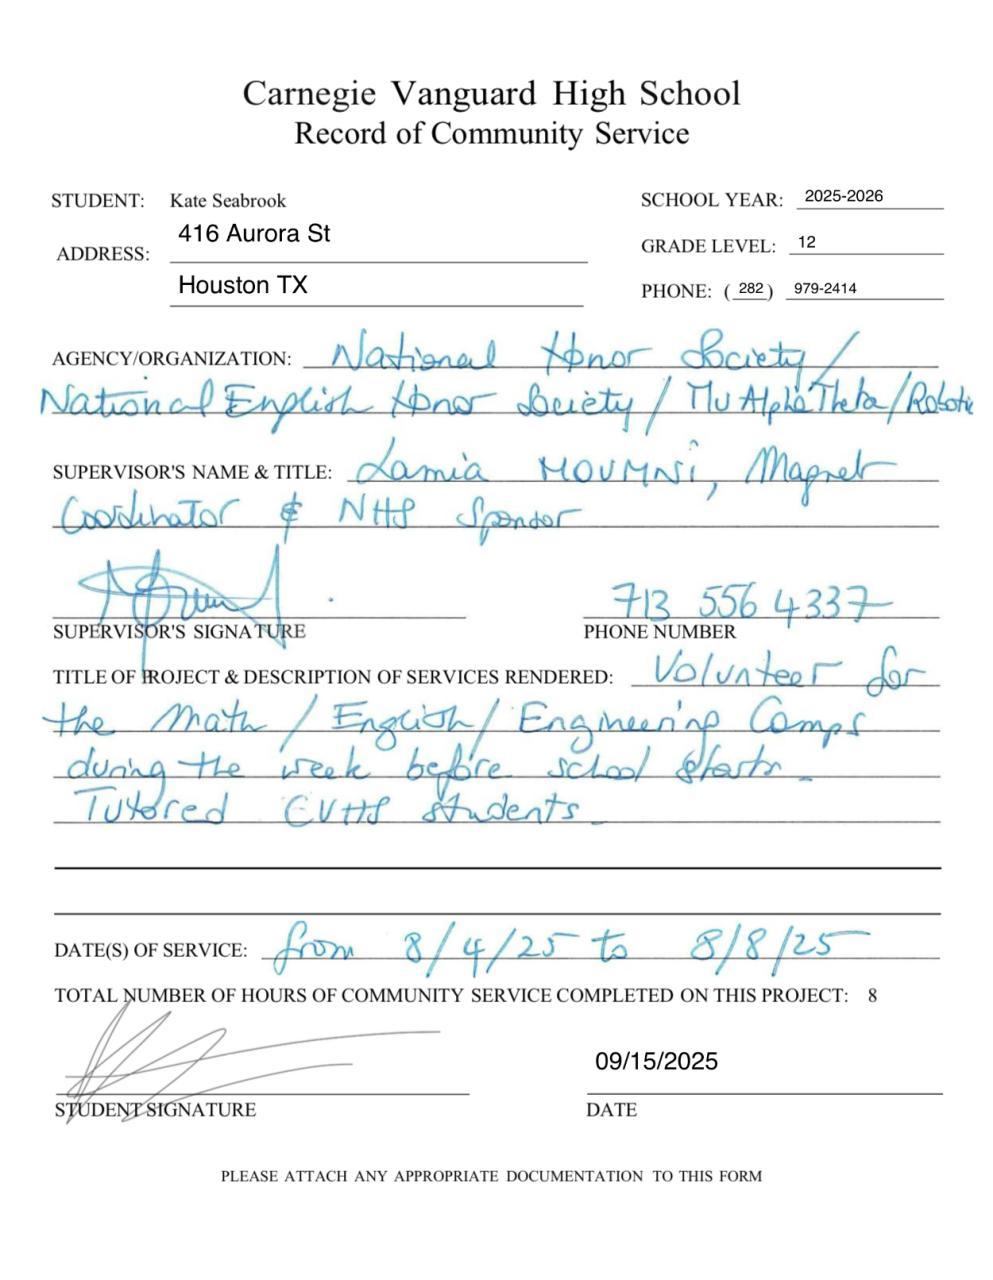 Carnegie Vanguard High School
Record of Community Service
STUDENT: Kate Seabrook
SCHOOL YEAR: 2025-2026
ADDRESS: 416 Aurora St
GRADE LEVEL: 12
Houston TX
PHONE: (282) 979-2414
AGENCY/ORGANIZATION: National Honor Society/
National English Honor Society / Mu Alpha Theta/Robotic
SUPERVISOR'S NAME & TITLE: Lamia MOUMNI, Magnet
Coordinator & NHS Sponsor
713 556 4337
SUPERVISOR'S SIGNATURE PHONE NUMBER
TITLE OF PROJECT & DESCRIPTION OF SERVICES RENDERED: Volunteer for
the Math / English / Engineering Camps
during the week before school starts.
Tutored CVHS students.
DATE(S) OF SERVICE: from 8/4/25 to 8/8/25
TOTAL NUMBER OF HOURS OF COMMUNITY SERVICE COMPLETED ON THIS PROJECT: 8
09/15/2025
STUDENT SIGNATURE DATE
PLEASE ATTACH ANY APPROPRIATE DOCUMENTATION TO THIS FORM